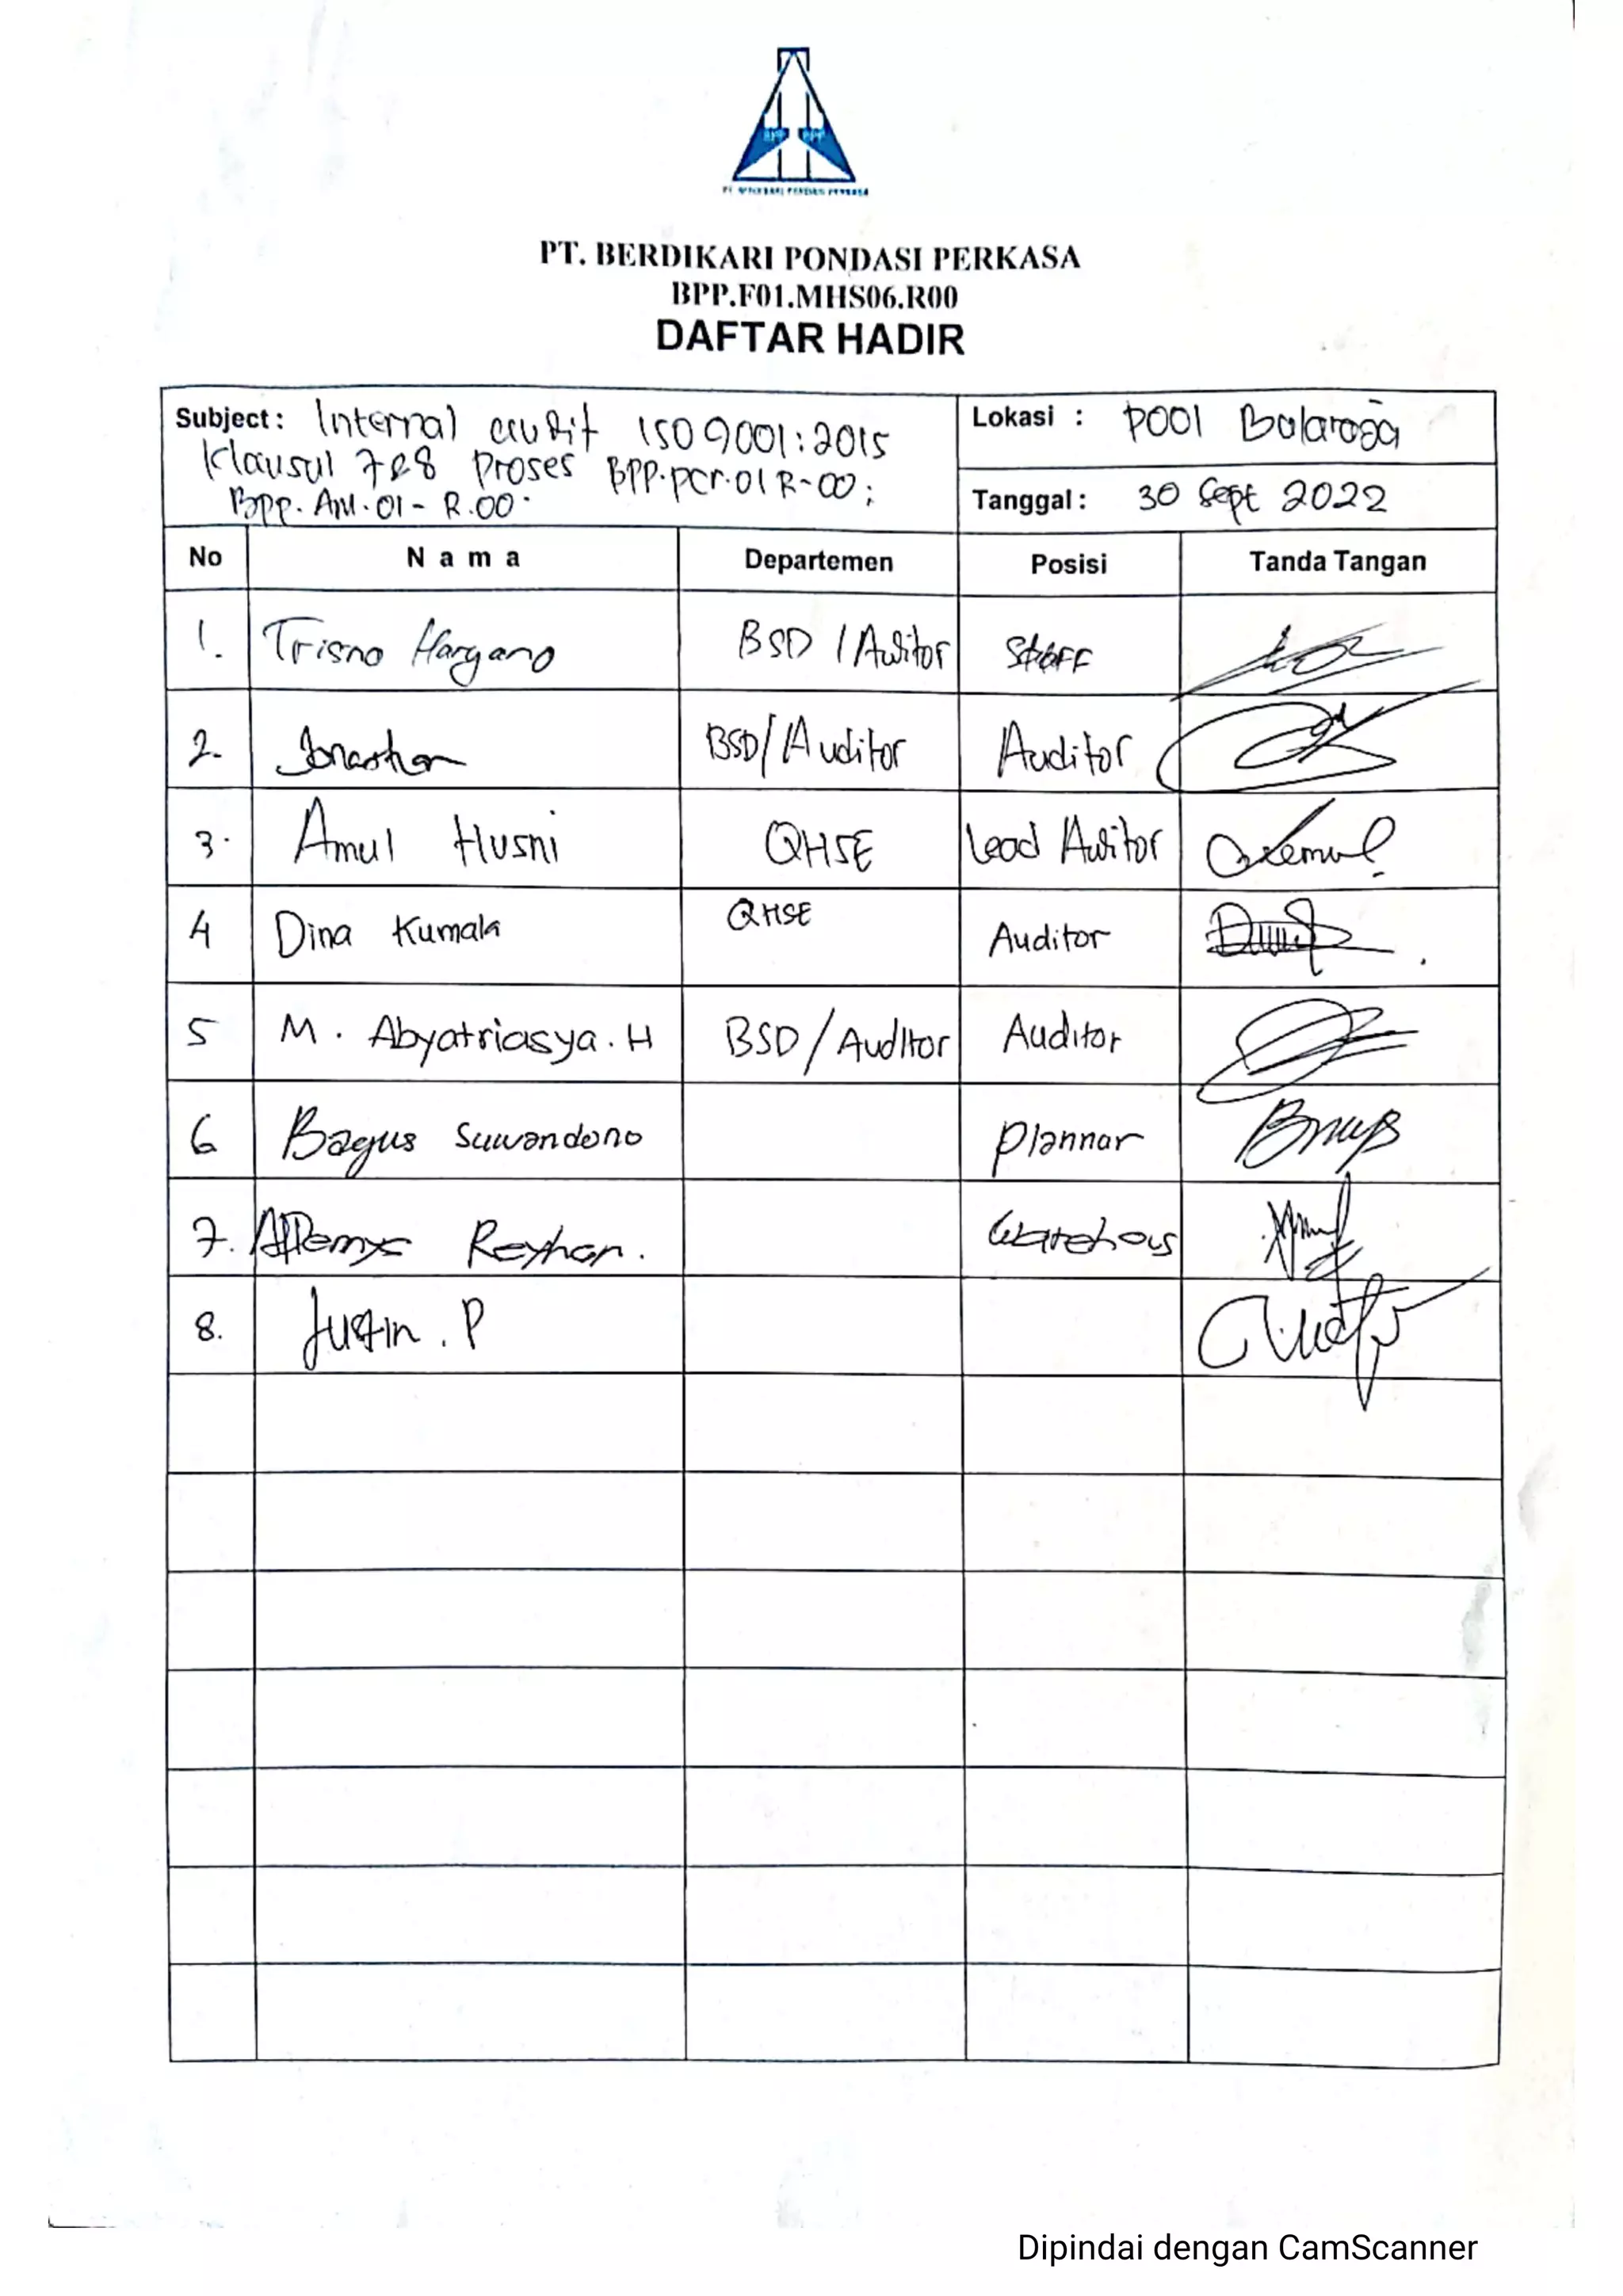 BPP BPP
PT. BERDIKARI PONDASI PERKASA
PT. BERDIKARI PONDASI PERKASA
BPP.F01.MHS06.R00
DAFTAR HADIR
Subject : Internal audit ISO 9001:2015
Klausul 7&8 Proses BPP.PCr.01 R-00;
Bpp. AM.01- R.00.
Lokasi : Pool Balaraja
Tanggal : 30 Sept 2022
No Nama Departemen Posisi Tanda Tangan
1. Trisno Hargano BSD / Auditor Staff
2. Jonathan BSD/Auditor Auditor
3. Amul Husni QHSE Lead Auditor
4 Dina Kumala QHSE Auditor
5 M. Abyatriasya. H BSD/Auditor Auditor
6 Bagus Suwandono Plannar
7. Reyhan. Warehous
8. Justin. P
Dipindai dengan CamScanner